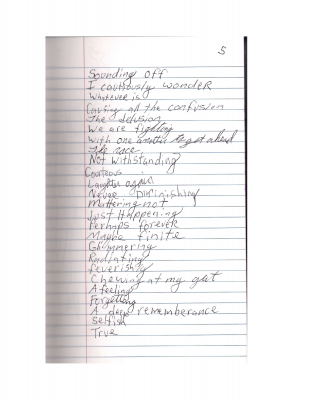 5
Sounding off
I cautiously wonder
Whatever is
Causing all the confusion
The delusion
We are fighting
With one another to get ahead
The race
Not withstanding
Laughter again
Never Diminishing
Mattering not
Just Happening
Perhaps forever
Maybe finite
Glimmering
Radiating
feverishly
Chewing at my gut
A feeling
Forgetting
A deep rememberance
Selfish
True